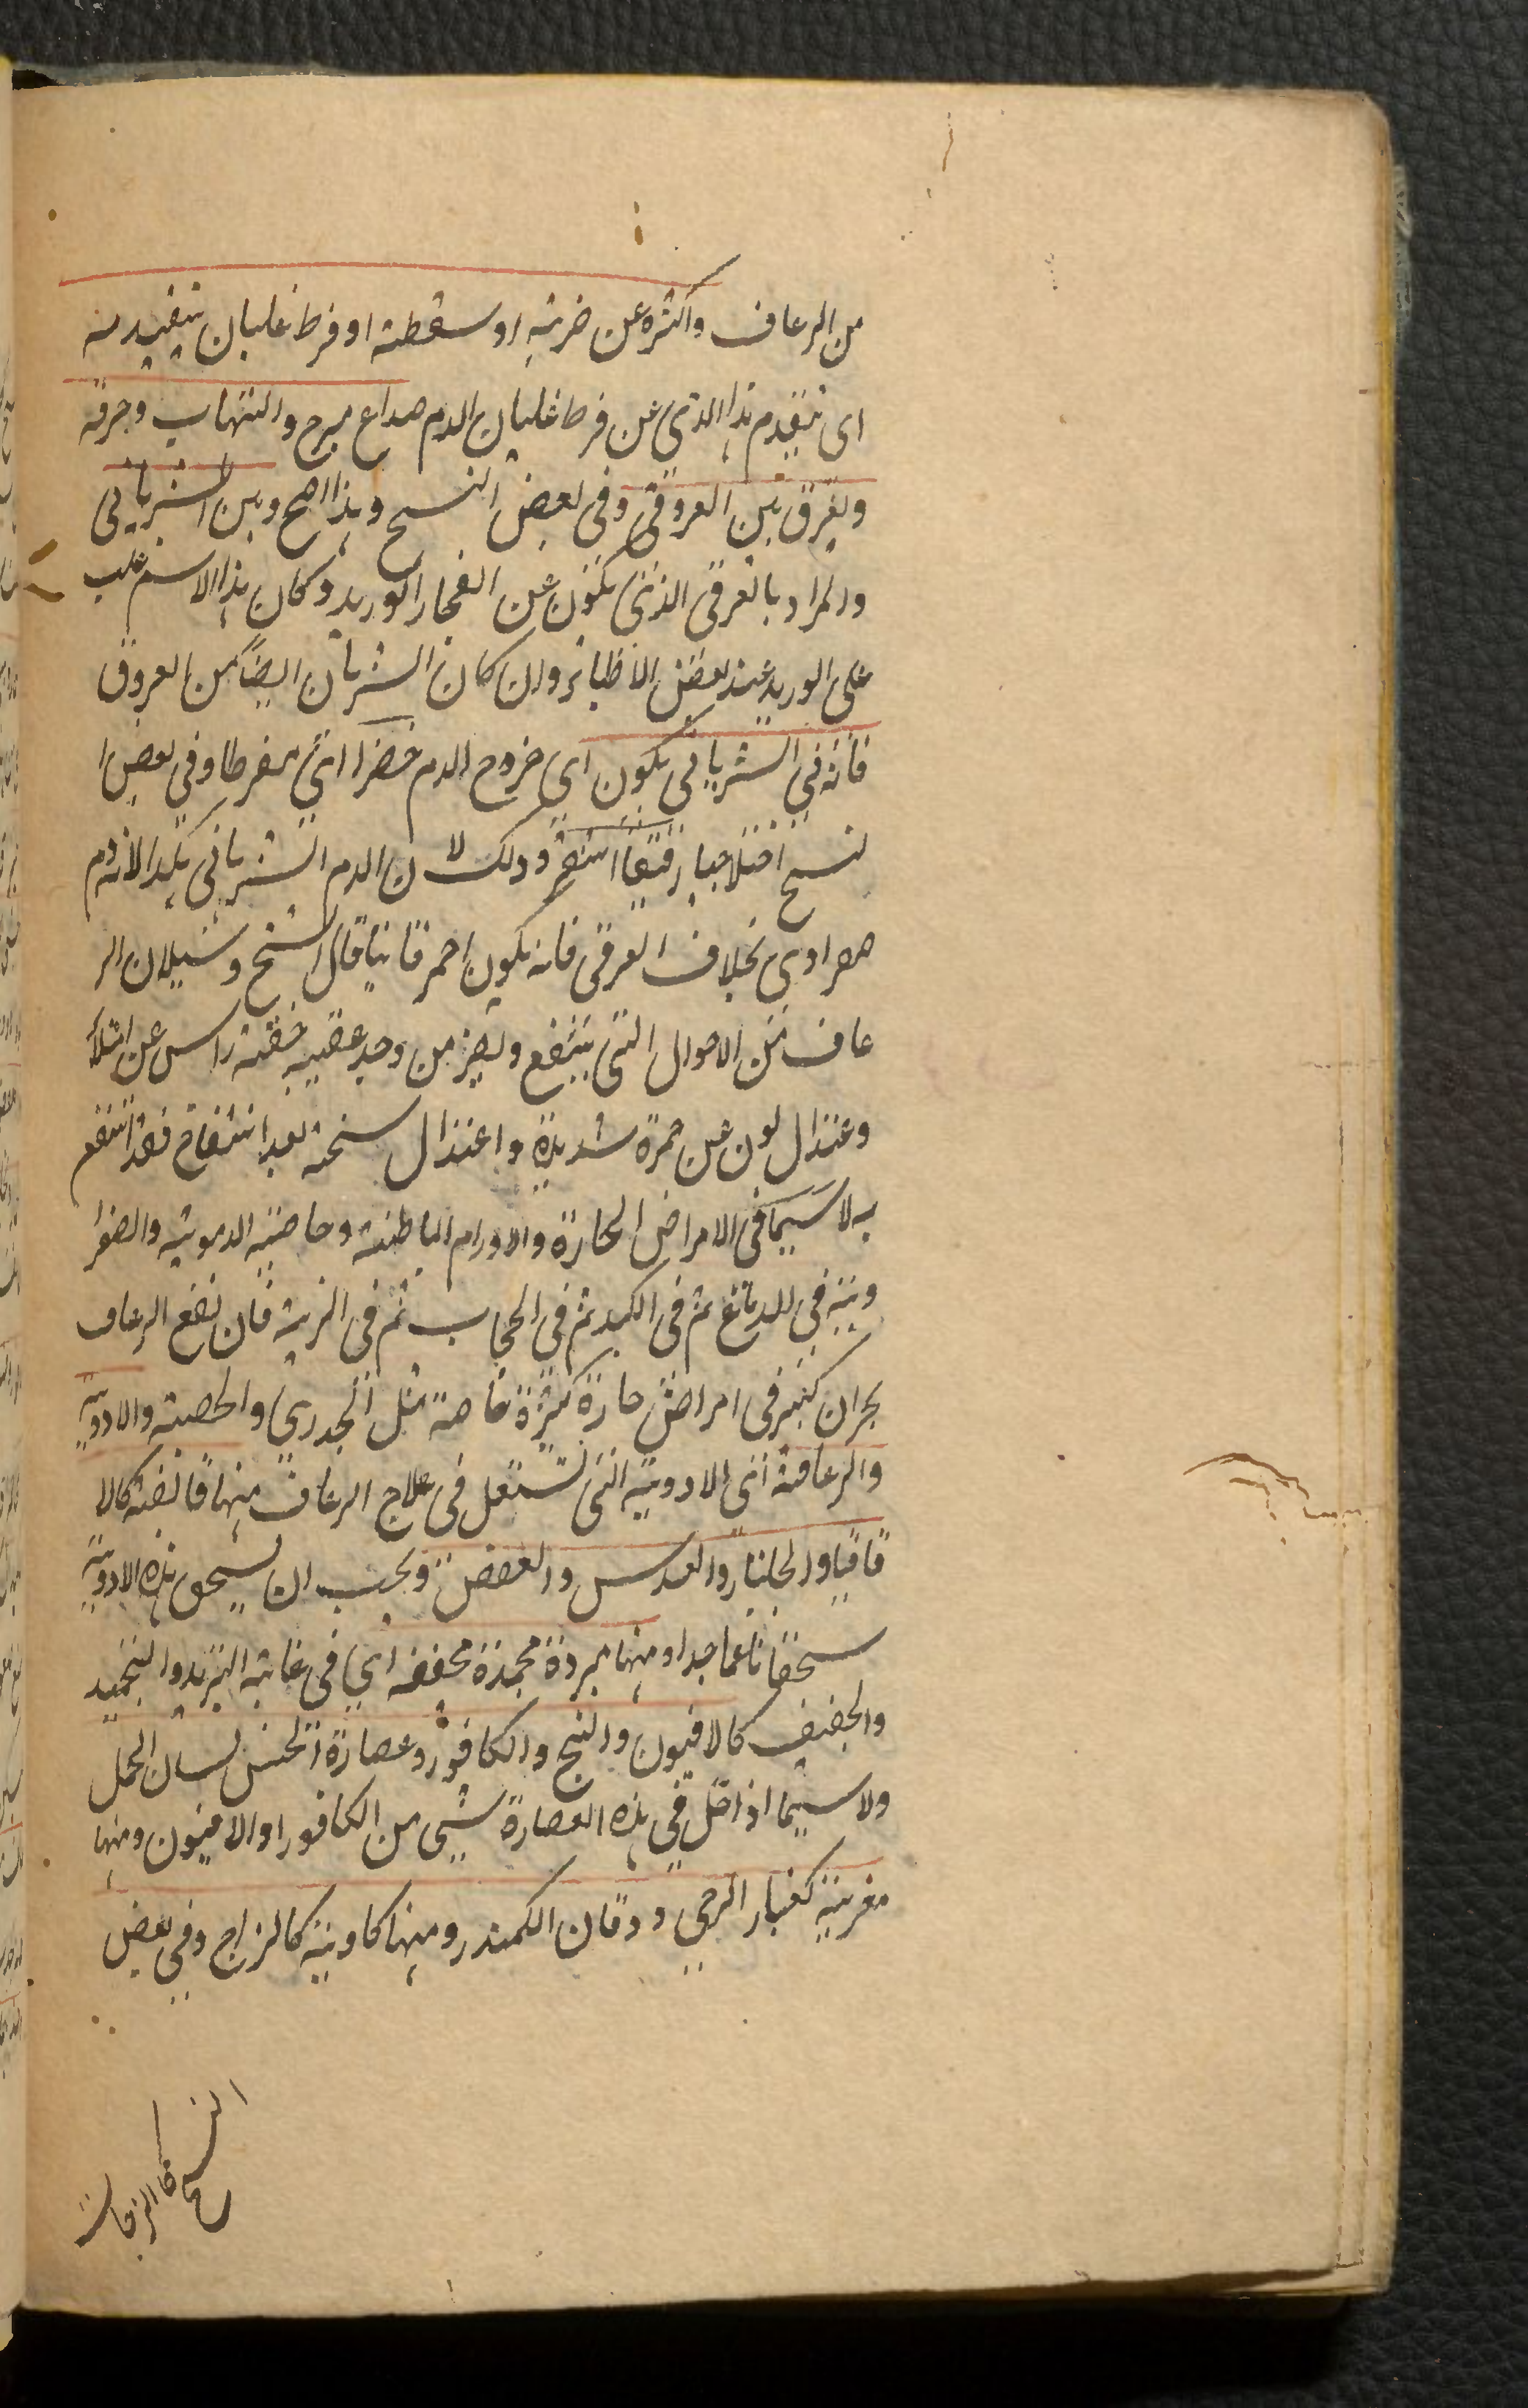 من الرعاف واكثره عن ضربة او سقطة او فرط غليان يتقدمه
اى يتقدم هذا الذى عن فرط غليان الدم صداع مبرح والتهاب وحرقة
ويفرق بين العروقى وفى بعض النسخ وهذا اصح وبين الشريانى
والمراد بالعرقى الذى يكون عن انفجار الوريد وكان هذا الاسم غلب
على الوريد عند بعض الاطباء وان كان الشريان ايضًا من العروق
فانه فى الشريانى يكون اى خروج الدم حفزا اى مفرطا وفى بعض ا
لنسخ رقيقا اشقر وذلك لان الدم الشريانى هكذا لانه دم
صفراوى بخلاف العرقى فانه يكون احمر قانيا قال الشيخ وسيلان الر
عاف من الاحوال التى ينتفع ويضر من وجد عقيبه خفة راس عن امتلأ
وعتدال لون عن حمرة شديدة واعتدال سخنة بعد انتفاخ فقد انتفع
به لا سيما فى الامراض الحارة والاورام الباطنة وخاصة الدموية والصفرا
وية فى الدماغ ثم فى الكبد ثم فى الحجاب ثم فى الرية فان نفع الرعاف
بحران كثير فى امراض حارة كثيرة خاصة مثل الجدرى والحصبة والادوية
والرعافة اى الادوية التى تستعمل فى علاج الرعاف منها قابضة كالا
قاقيا والجلنار والعدس والعفص ويجب ان يسحق هذه الادوية
سحقا ناعما جدا ومنها مبردة مجمدة مخففة اى فى غاية التبريد والتجميد
والجفيف كالافيون والبنج والكافور وعصارة الخس لسان الحمل
ولا سيما اذا حل فى هذه العصارة شيى من الكافور او الافيون ومنها
مغرية كغبار الرحى ودقان الكمندر ومنها كاوية كالزاج وفى بعض
النسخ كالزاجات